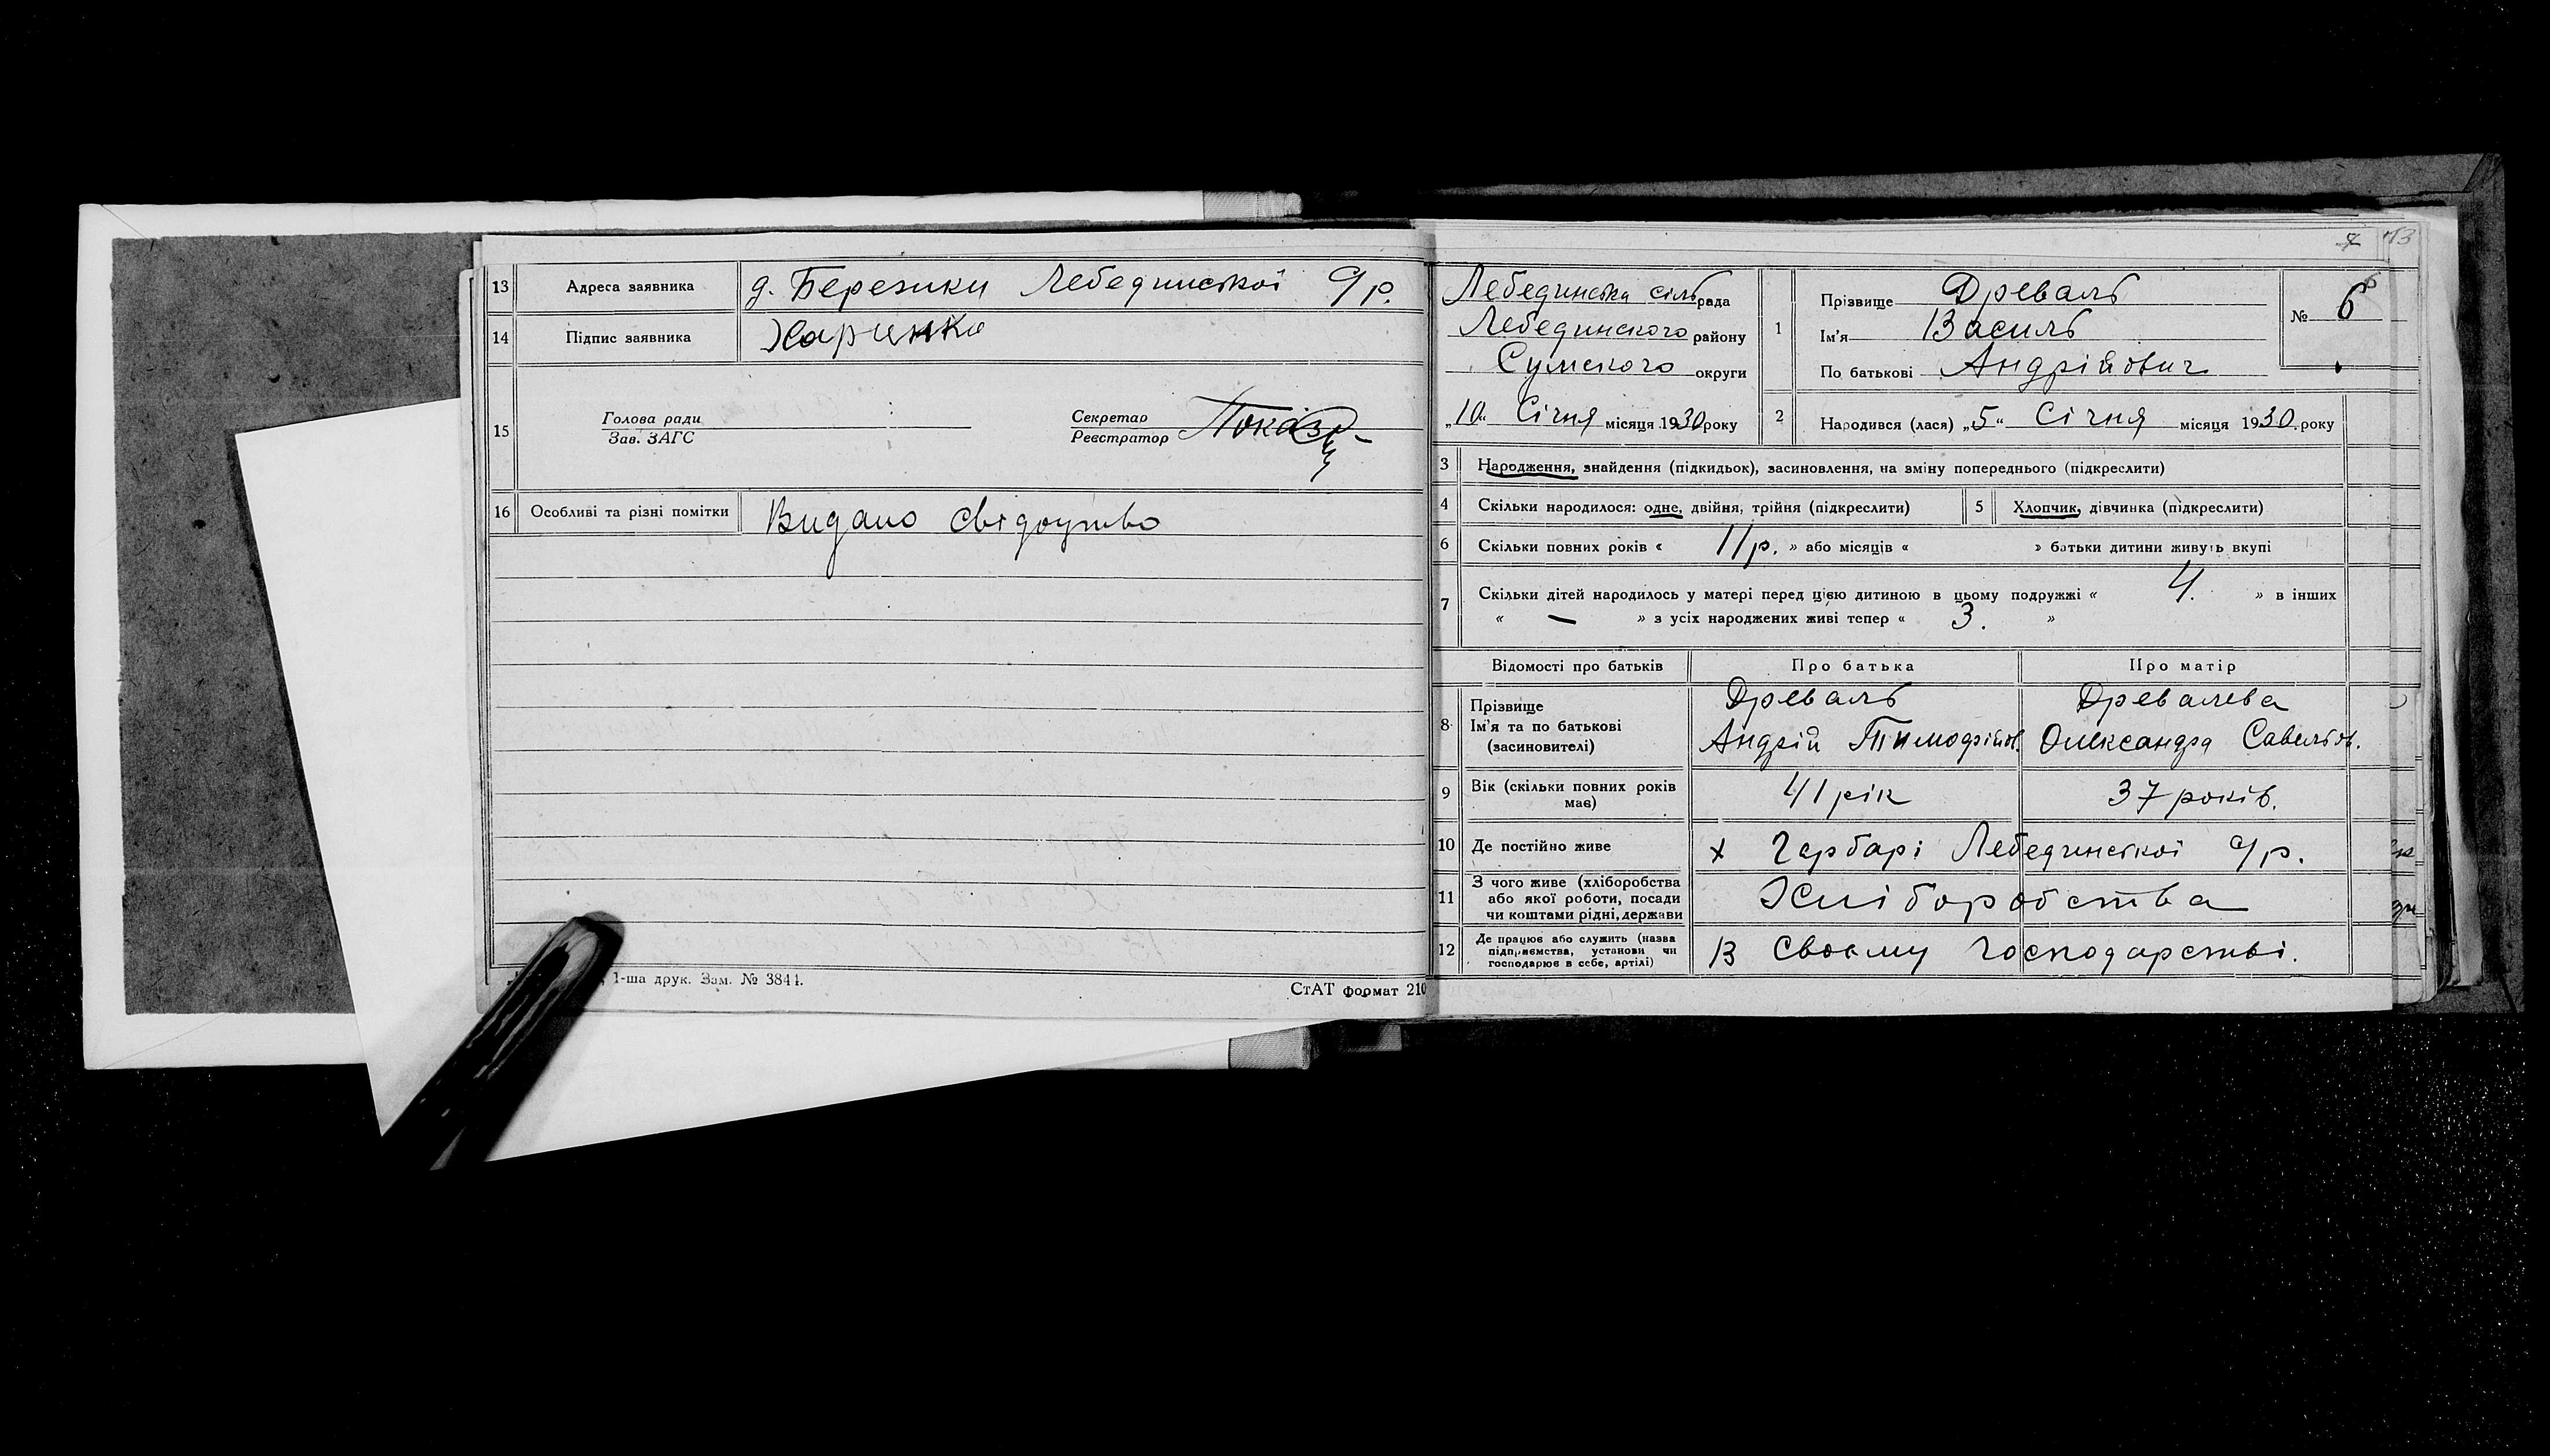 13 Адреса заявника д. Березики Лебединської с/р.
14 Підпис заявника Харинка
15 Голова ради
Зав. ЗАГС
Секретар
Реєстратор
16 Особливі та різні помітки Видано свідоцтво
1-ша друк. Зам. № 3844.
СтАТ формат 210
7 13
Лебединська сільрада
Лебединского району
Сумского округи
„10“ Січня місяця 1930 року
1 Прізвище Древаль
Ім'я Василь
По батькові Андрійович
№ 6
2 Народився (лася) „5“ Січня місяця 1930 року
3 Народження, знайдення (підкидьок), засиновлення, на зміну попереднього (підкреслити)
4 Скільки народилося: одне, двійня, трійня (підкреслити) 5 Хлопчик, дівчинка (підкреслити)
6 Скільки повних років « 11 р. » або місяців « » батьки дитини живуть вкупі
7 Скільки дітей народилось у матері перед цією дитиною в цьому подружжі « 4. » в інших
« — » з усіх народжених живі тепер « 3. »
Відомості про батьків Про батька Про матір
8 Прізвище
Ім'я та по батькові
(засиновителі)
Древаль
Андрій Тимофійов.
Древалева
Олександра Савельєв.
9 Вік (скільки повних років має) 41 рік 37 років.
10 Де постійно живе х Гарбарі Лебединської с/р.
11 З чого живе (хліборобства
або якої роботи, посади
чи коштами рідні, держави
Хліборобства
12 Де працює або служить (назва
підприємства, установи чи
господарює в себе, артілі)
В своєму господарстві.